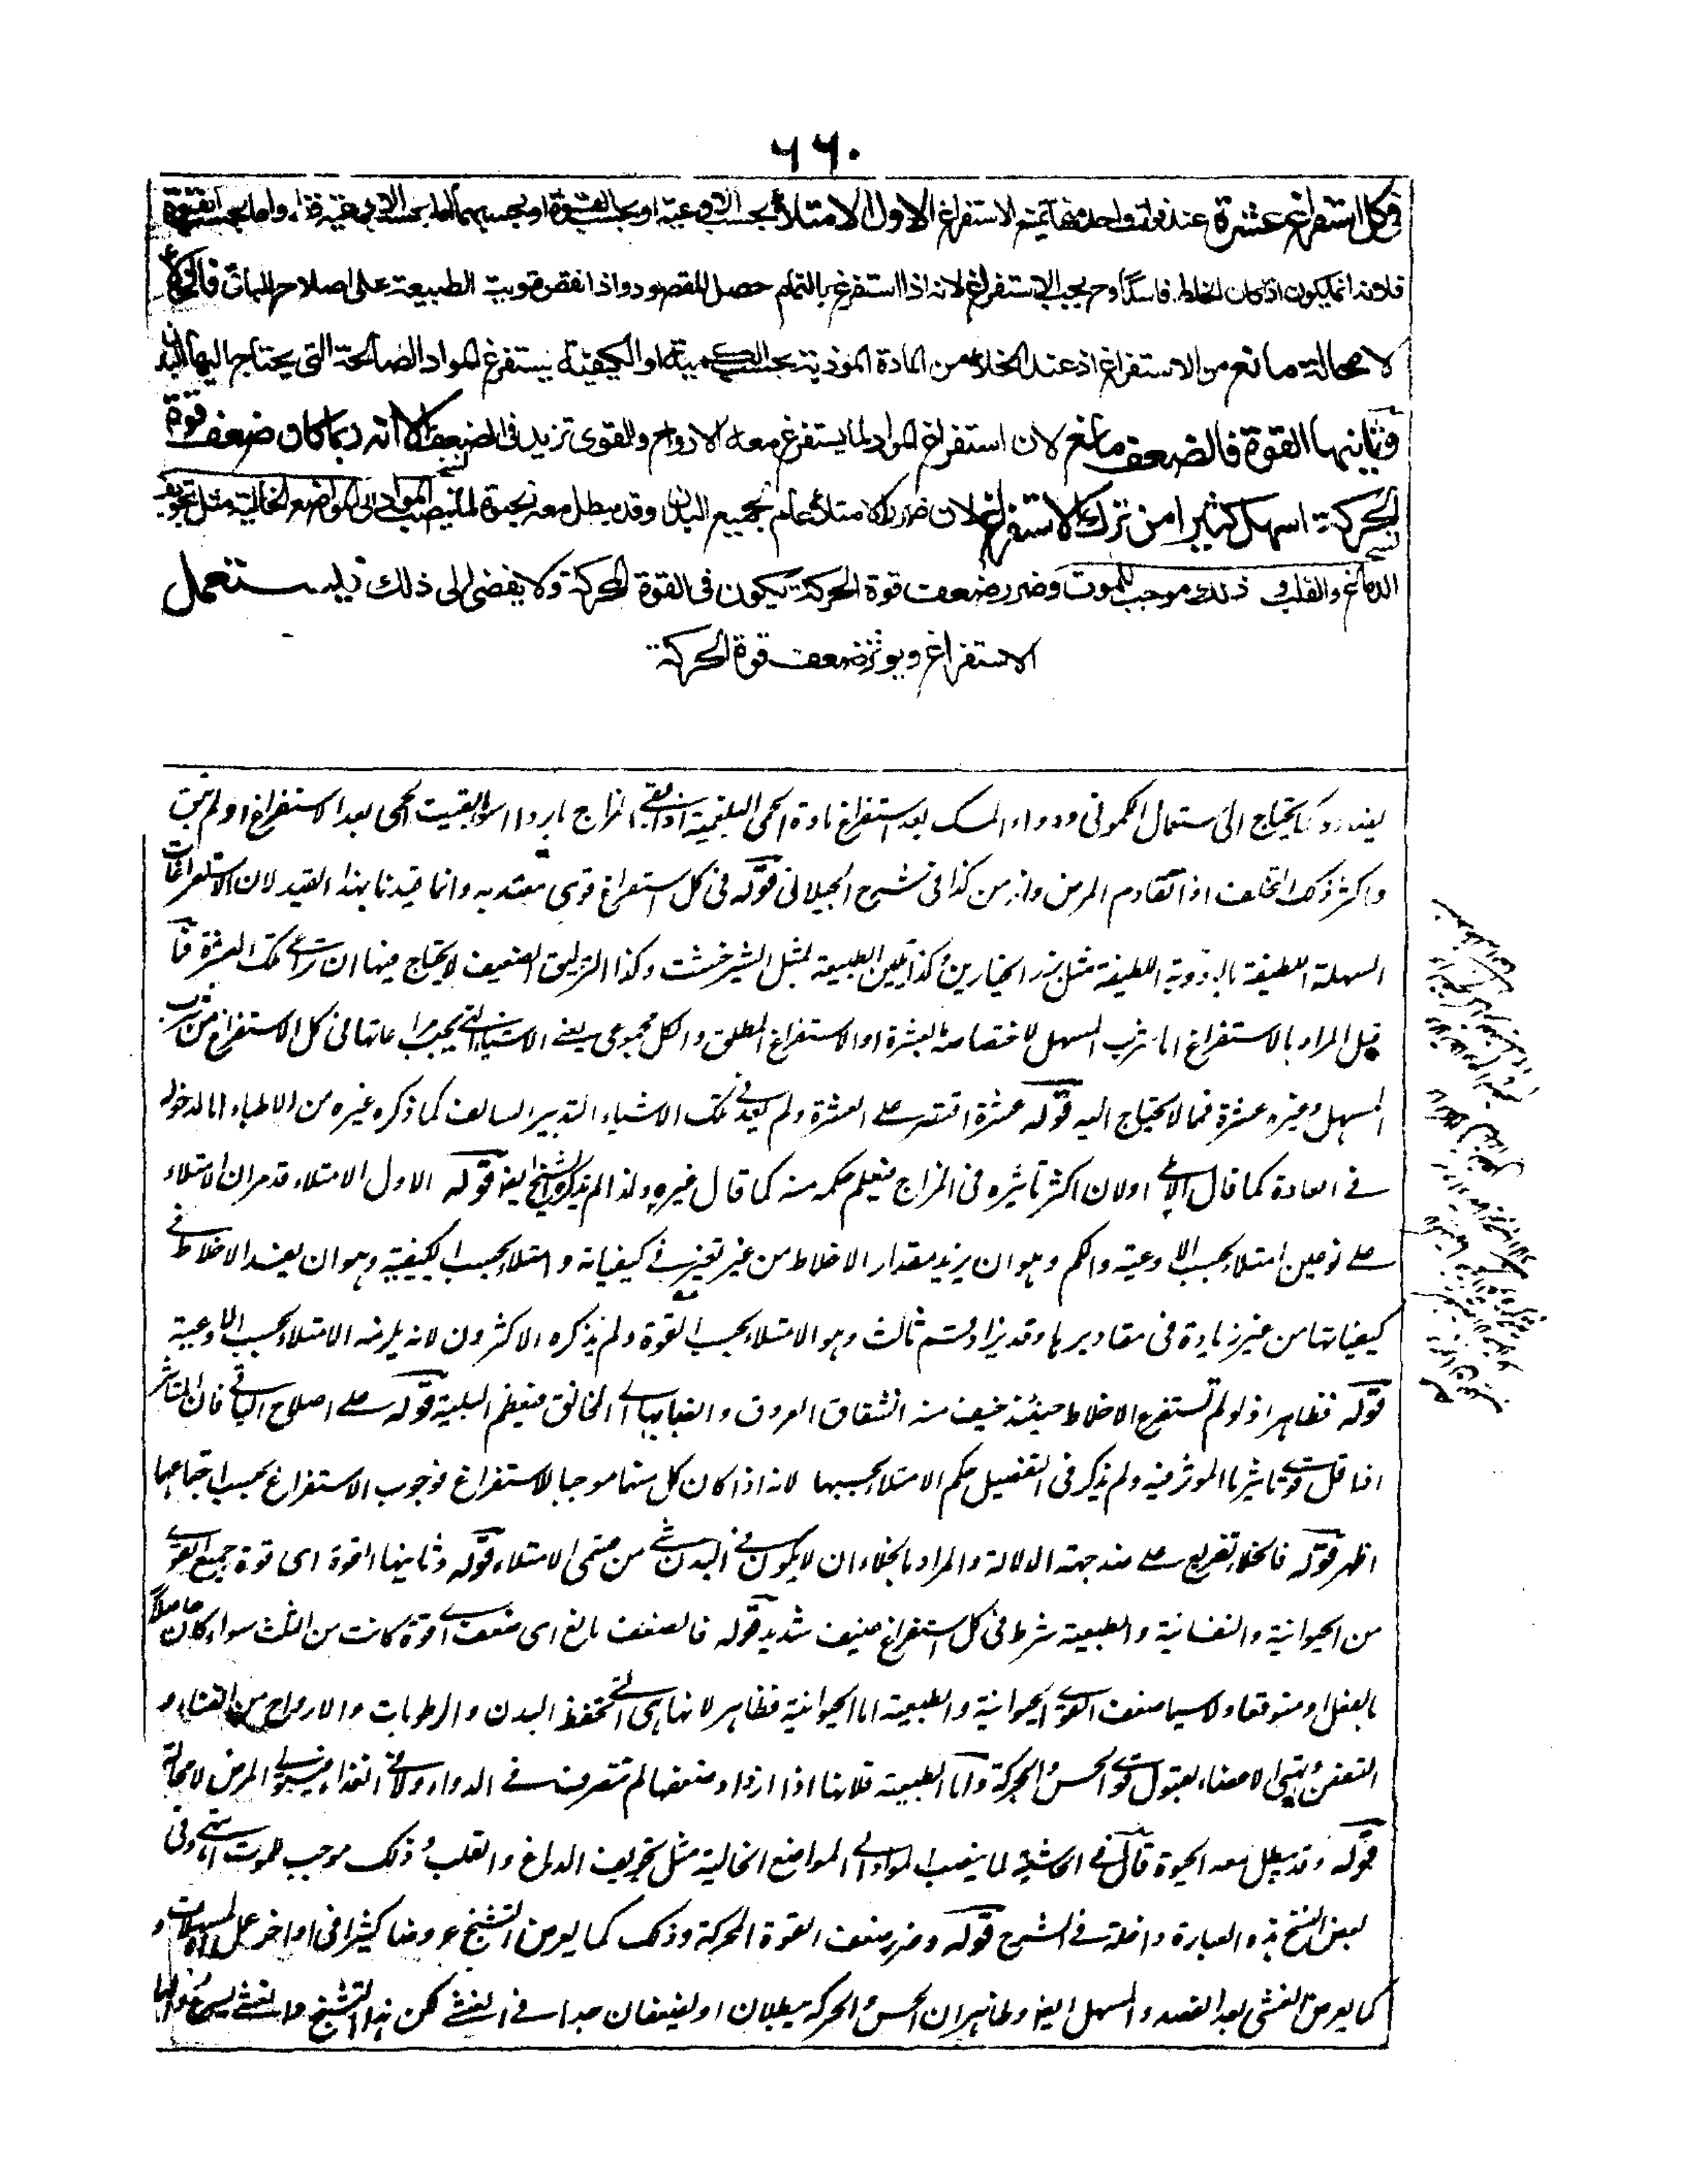 ٦٦٠
فى كل استفراغ عشرة عند فوات واحد منها يمتنع الاستفراغ الاول الامتلاء بحسب الاوعية او بحسب القوة او بحسبهما اما بحسب الاوعية واما بحسب القوة
فلانه انما يكون اذا كان الخلط فاسدا وح يجب الاستفراغ لانه اذا استفرغ بالتمام حصل المقصود واذا نقص قويت الطبيعة على اصلاح الباقى فالخلاء
لا محالة مانع من الاستفراغ اذ عند الخلاء من المادة الموذية بحسب الكمية او الكيفية يستفرغ المواد الصالحة التى يحتاج اليها البدن
وثانيها القوة فالضعف مانع لان استفراغ المواد لما يستفرغ معه الارواح والقوى تزيد فى الضعف الا انه ربما كان ضعف قوة
الحركة اسهل كثيرا من ترك الاستفراغ لان ضرر الامتلاء عام لجميع البدن وقد يبطل معه الحيوة لما ينصب المواد الى المواضع الخالية مثل تجويف
الدماغ والقلب و ذلك موجب للموت وضرر ضعف قوة الحركة يكون فى القوة المحركة ولا يفضى الى ذلك فليستعمل
الاستفراغ ويوثر ضعف قوة الحركة
يحتاج الى استعمال الكمونى ودواء المسك بعد استفراغ مادة الحمى البلغمية اذا بقى المزاج باردا سواء بقيت الحمى بعد الاستفراغ او لم تبق
واكثر ذلك التخلف اذا تقادم المرض وازمن كذا فى شرح الجيلانى قوله فى كل استفراغ قوى معتد به وانما قيدنا بهذا القيد لان الاستفراغات
السهلة اللطيفة بالادوية اللطيفة مثل بزر الخيارين وكذا تليين الطبيعة بمثل الشيرخشت وكذا التزليق الضعيف لا يحتاج فيها ان تراعى تلك العشرة فما
قيل المراد بالاستفراغ اما شرب المسهل لاختصاصه بالعشرة او الاستفراغ المطلق والكل مجموعى يعنى الاشياء التى يجب مراعاتها فى كل الاستفراغ من شرب
المسهل وغيره عشرة فمما لا يحتاج اليه قوله عشرة اقتصر على العشرة ولم يعد فى تلك الاشياء التدبير السالف كما ذكره غيره من الاطباء اما لدخوله
فى العادة كما قال الآملى او لان اكثر تاثيره فى المزاج فيعلم حكمه منه كما قال غيره ولذا لم يذكره الشيخ ايضا قوله الاول الامتلاء قد مر ان الامتلاء
على نوعين امتلاء بحسب الاوعية والكم وهو ان يزيد مقدار الاخلاط من غير تغير فى كيفياته وامتلاء بحسب الكيفية وهو ان يفسد الاخلاط فى
كيفياتها من غير زيادة فى مقاديرها وقد يزاد قسم ثالث وهو الامتلاء بحسب القوة ولم يذكره الاكثرون لانه يلزمه الامتلاء بحسب الاوعية
قوله فظاهر اذ لو لم تستفرغ الاخلاط حينئذ خيف منه انشقاق العروق وانصبابها الى المخانق فيعظم البلية قوله على اصلاح الباقى فان المتاثر
اذا قل قوى تاثير الموثر فيه ولم يذكر فى التفصيل حكم الامتلاء بحسبهما لانه اذا كان كل منهما موجبا للاستفراغ فوجوب الاستفراغ بحسب اجتماعهما
اظهر قوله فالخلاء تفريع على ضد جهة الدلالة والمراد بالخلاء ان لا يكون فى البدن شئ من قسمى الامتلاء قوله وثانيها القوة اى قوة جميع القوى
من الحيوانية والنفسانية والطبيعية شرط فى كل استفراغ عنيف شديد قوله فالضعف مانع اى ضعف اى قوة كانت من الثلث سواء كان حاصلا
بالفعل او متوقعا ولا سيما ضعف القوة الحيوانية والطبيعية اما الحيوانية فظاهر لانها هى التى تحفظ البدن والرطوبات والارواح من الفساد و
التعفن وتهيئ الاعضاء لقبول قوى الحس والحركة واما الطبيعية فلانها اذا ازداد ضعفها لم تتصرف فى الدواء ولا فى الغذاء فيستولى المرض لا محالة
قوله وقد يبطل معه الحيوة قال فى الحاشية لما ينصب المواد الى المواضع الخالية مثل تجويف الدماغ والقلب وذلك موجب للموت انتهى وفى
بعض النسخ هذه العبارة داخلة فى الشرح قوله وضرر ضعف القوة المحركة وذلك كما يعرض التشنج عروضا كثيرا فى اواخر عمل المسهلات و
كما يعرض الغشى بعد الفصد والمسهل ايضا وظاهر ان الحس والحركة يبطلان او يضعفان جدا فى الغشى لكن هذا التشنج والغشى